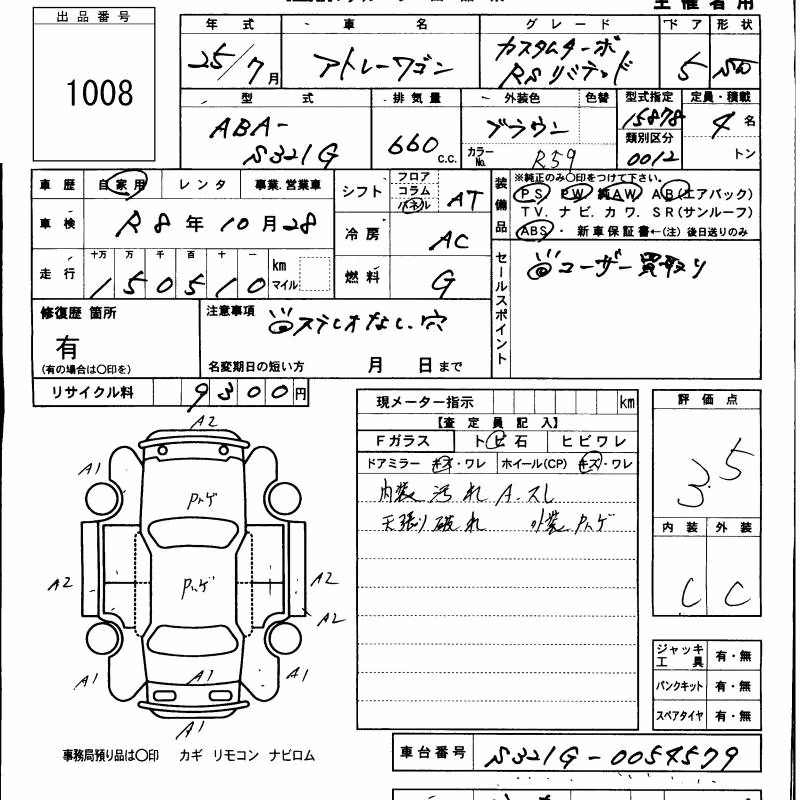 主催者用
出品番号
1008
年式 車名 グレード ドア 形状
25/7月 アトレーワゴン カスタムターボ RSリミテッド 5 5D
型式 排気量 外装色 色替 型式指定 定員・積載
ABA-S321G 660 c.c. ブラウン 15878 4名
カラーNo. R59 類別区分 0012 トン
車歴 自家用 レンタ 事業.営業車
車検 R8年10月28
走行 十万 万 千 百 十 一 km マイル
150510
シフト フロア コラム パネル AT
冷房 AC
燃料 G
装備品 ※純正のみ〇印をつけて下さい。
PS PW 純AW AB(エアバック)
TV. ナビ. カワ. SR(サンルーフ)
ABS・ 新車保証書←(注) 後日送りのみ
セールスポイント
◎ユーザー買取り
修復歴 箇所
有
(有の場合は〇印を)
注意事項
◎ステレオなし.穴
名変期日の短い方 月 日まで
リサイクル料 9300円
現メーター指示 km
【査定員記入】
Fガラス トビ石 ヒビワレ
ドアミラー キズ・ワレ ホイール(CP) キズ・ワレ
内装汚れ A.スレ
天張り破れ 外装Pハゲ
評価点
3.5
内装 外装
C C
A2
A1
Pハゲ
Pハゲ
A2
A2
A2
A1
A1
A1
A1
ジャッキ工具 有・無
パンクキット 有・無
スペアタイヤ 有・無
事務局預り品は〇印 カギ リモコン ナビロム
車台番号 S321G-0054579